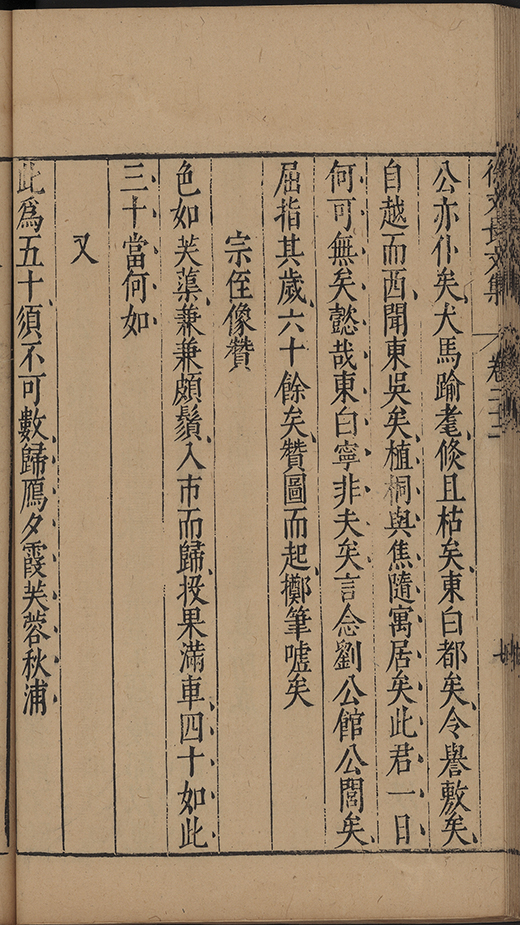 徐文長文集 卷二十二
公亦仆矣犬馬踰耄倐且枯矣東白都矣令譽敷矣
自越而西聞東吳矣植桐與焦隨寓居矣此君一日
何可無矣懿哉東白寧非夫矣言念劉公館公閭矣
屈指其歲六十餘矣贊圖而起擲筆噓矣
宗侄像贊
色如芙蕖兼兼頗鬚入市而歸投果滿車四十如此
三十當何如
又
此為五十須不可數歸鴈夕霞芙蓉秋浦